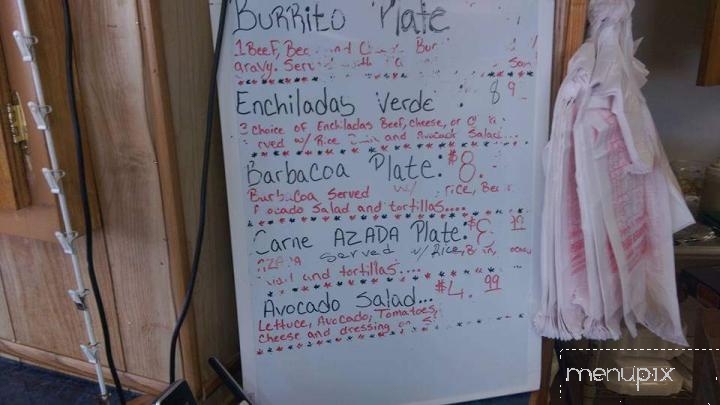 Burrito Plate
1 Beef, and
gravy.
Enchiladas Verde : 8 9
3 choice of Enchiladas Beef, cheese, or
w/ Rice and Avocado Salad...
Barbacoa Plate: $8.
Barbacoa Served w/ rice,
Salad and tortillas....
Carne AZADA Plate: $8
served w/ Rice,
and tortillas....
Avocado Salad... $4. 99
Lettuce, Avocado, Tomatoes,
cheese and dressing on
menupix